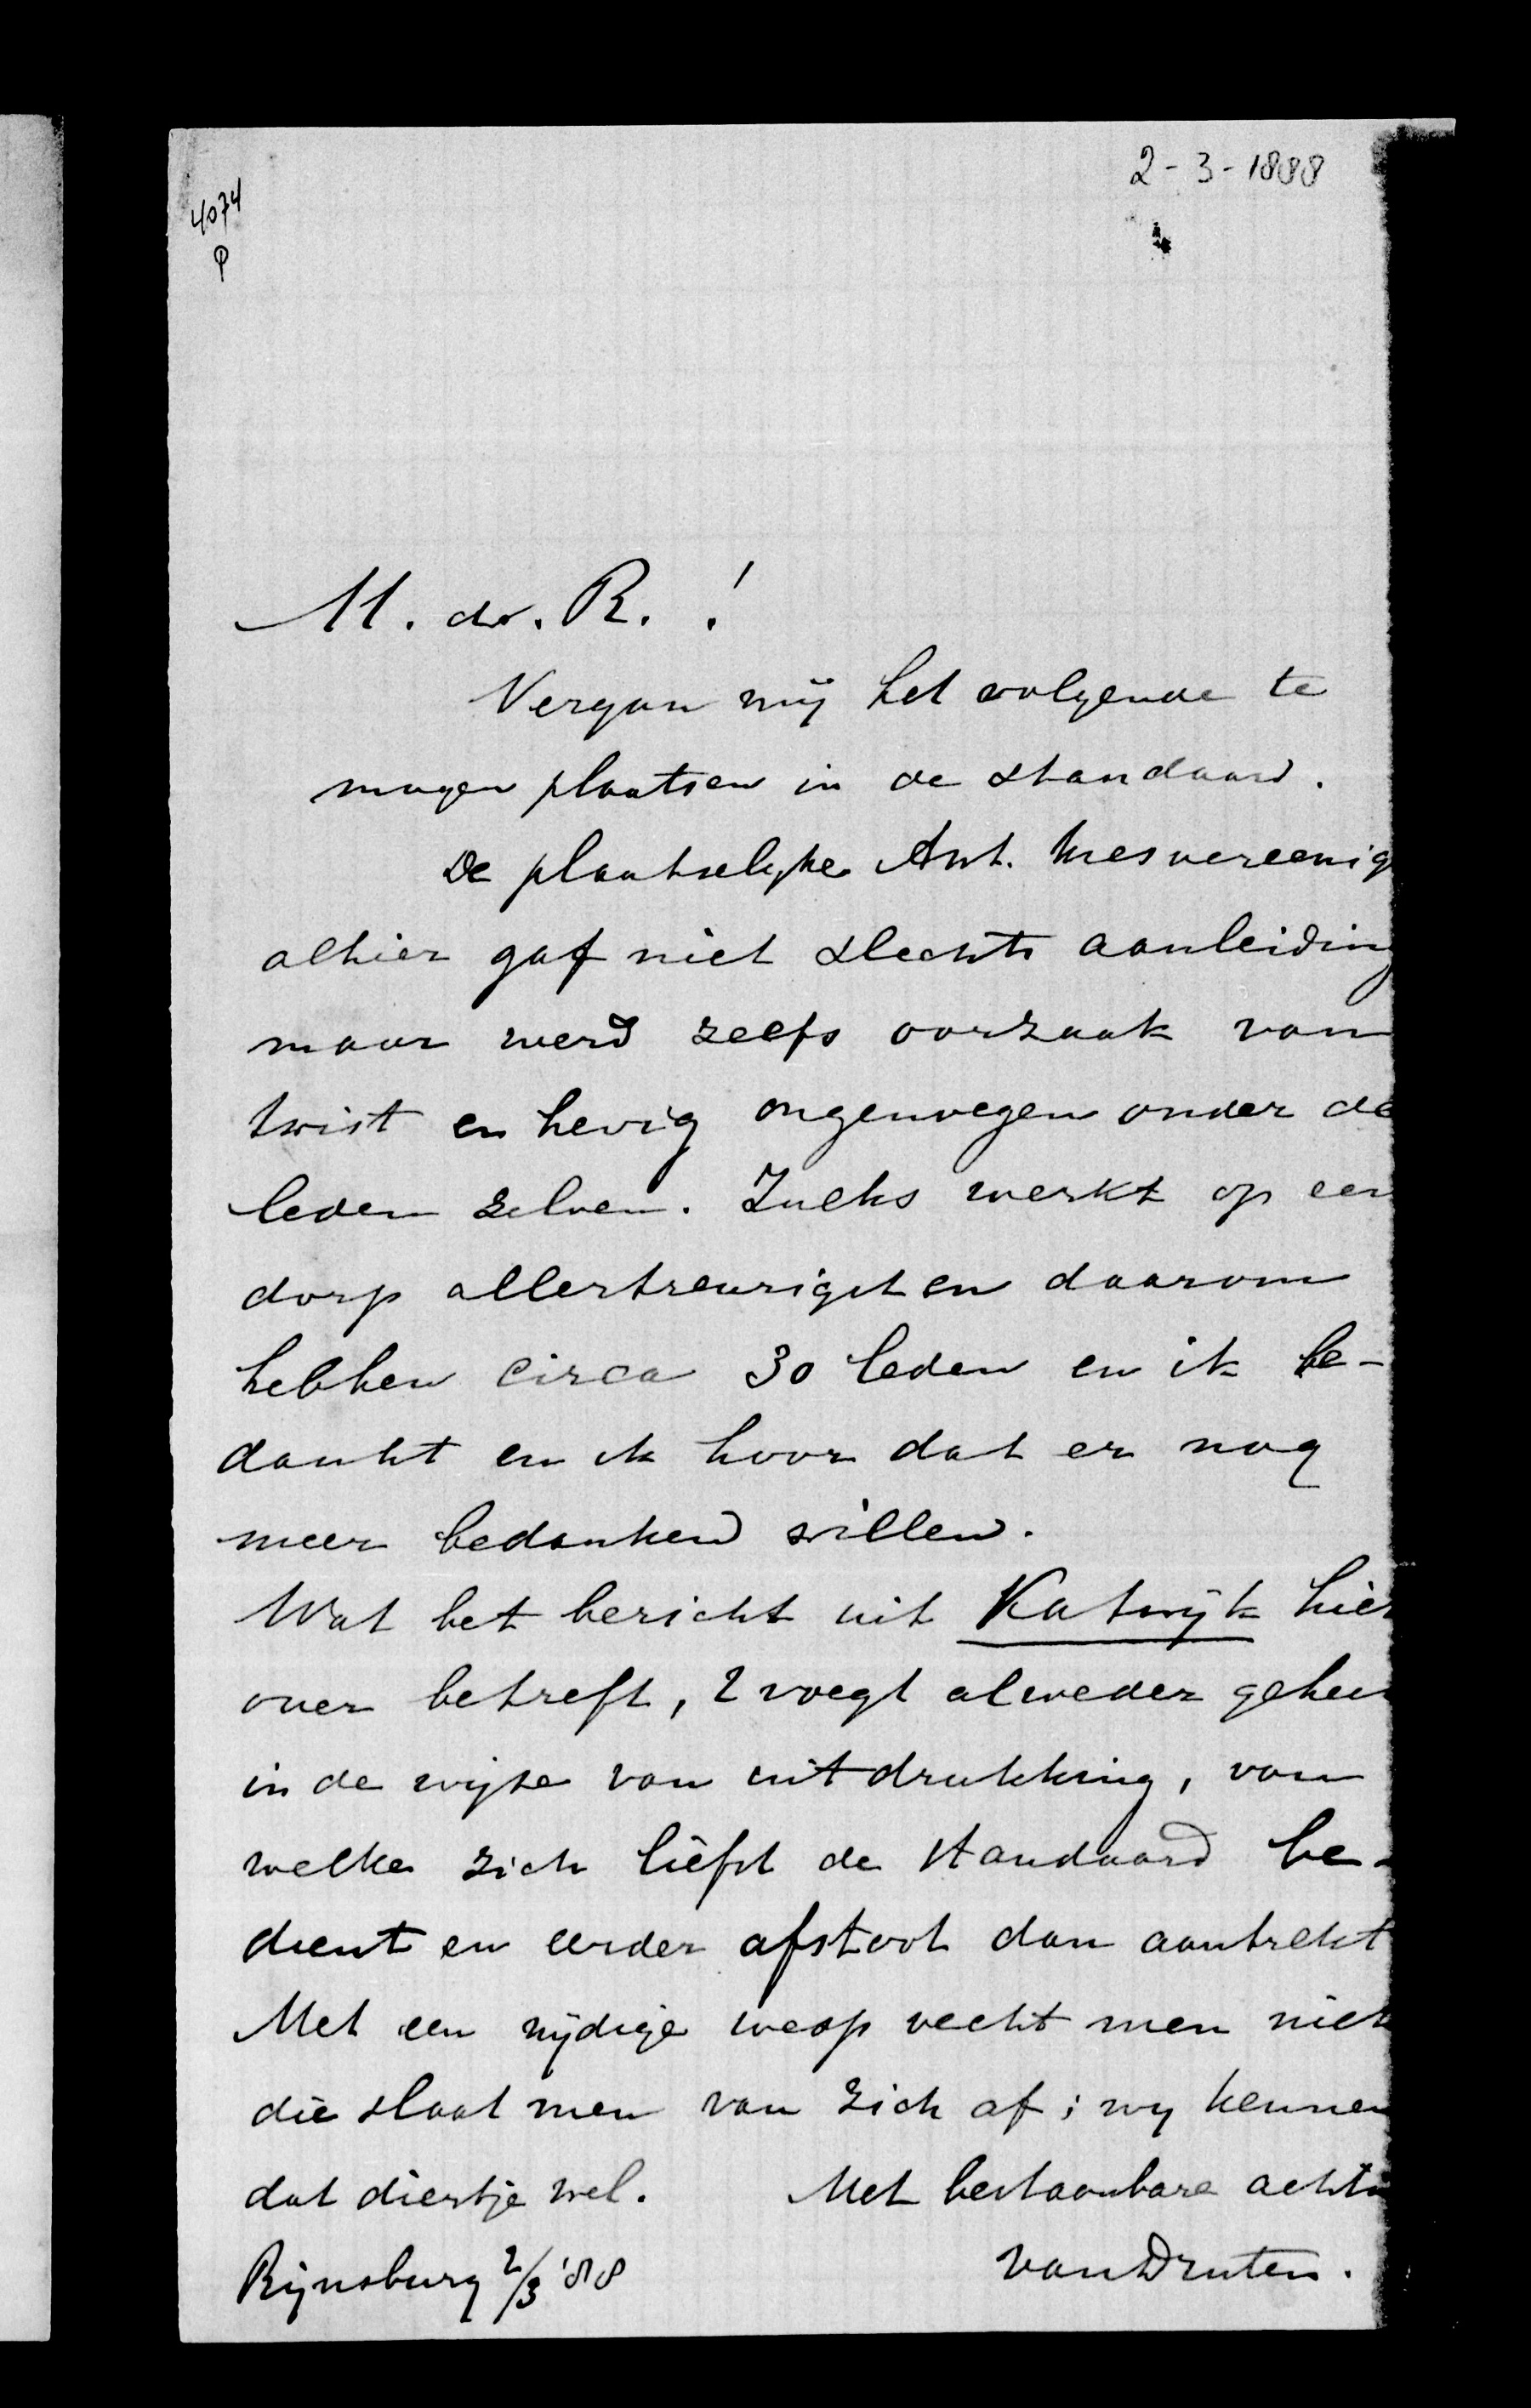 2-3-1888
4074
P
M. de. R. !
Vergun mij het volgende te
mogen plaatsen in de standaard.
De plaatselyke Ant. kiesvereenig
alhier gaf niet slechts aanleiding
maar werd zelfs oorzaak van
twist en hevig ongenoegen onder de
leden zelven. Zulks werkt op een
dorp allertreurigst en daarom
hebben circa 30 leden en ik be-
dankt en ik hoor dat er nog
meer bedanken willen.
Wat het bericht uit Katwijk hier
over betreft, 't voegt alweder geheel
in de wijze van uitdrukking, van
welke zich liefst de standaard be-
dient en eerder afstoot dan aantrekt
Met een nijdige wesp vecht men niet
die slaat men van zich af; wy kennen
dat diertje wel. Met bestaanbare achti
Rijnsburg 2/3 '88 van Druten.